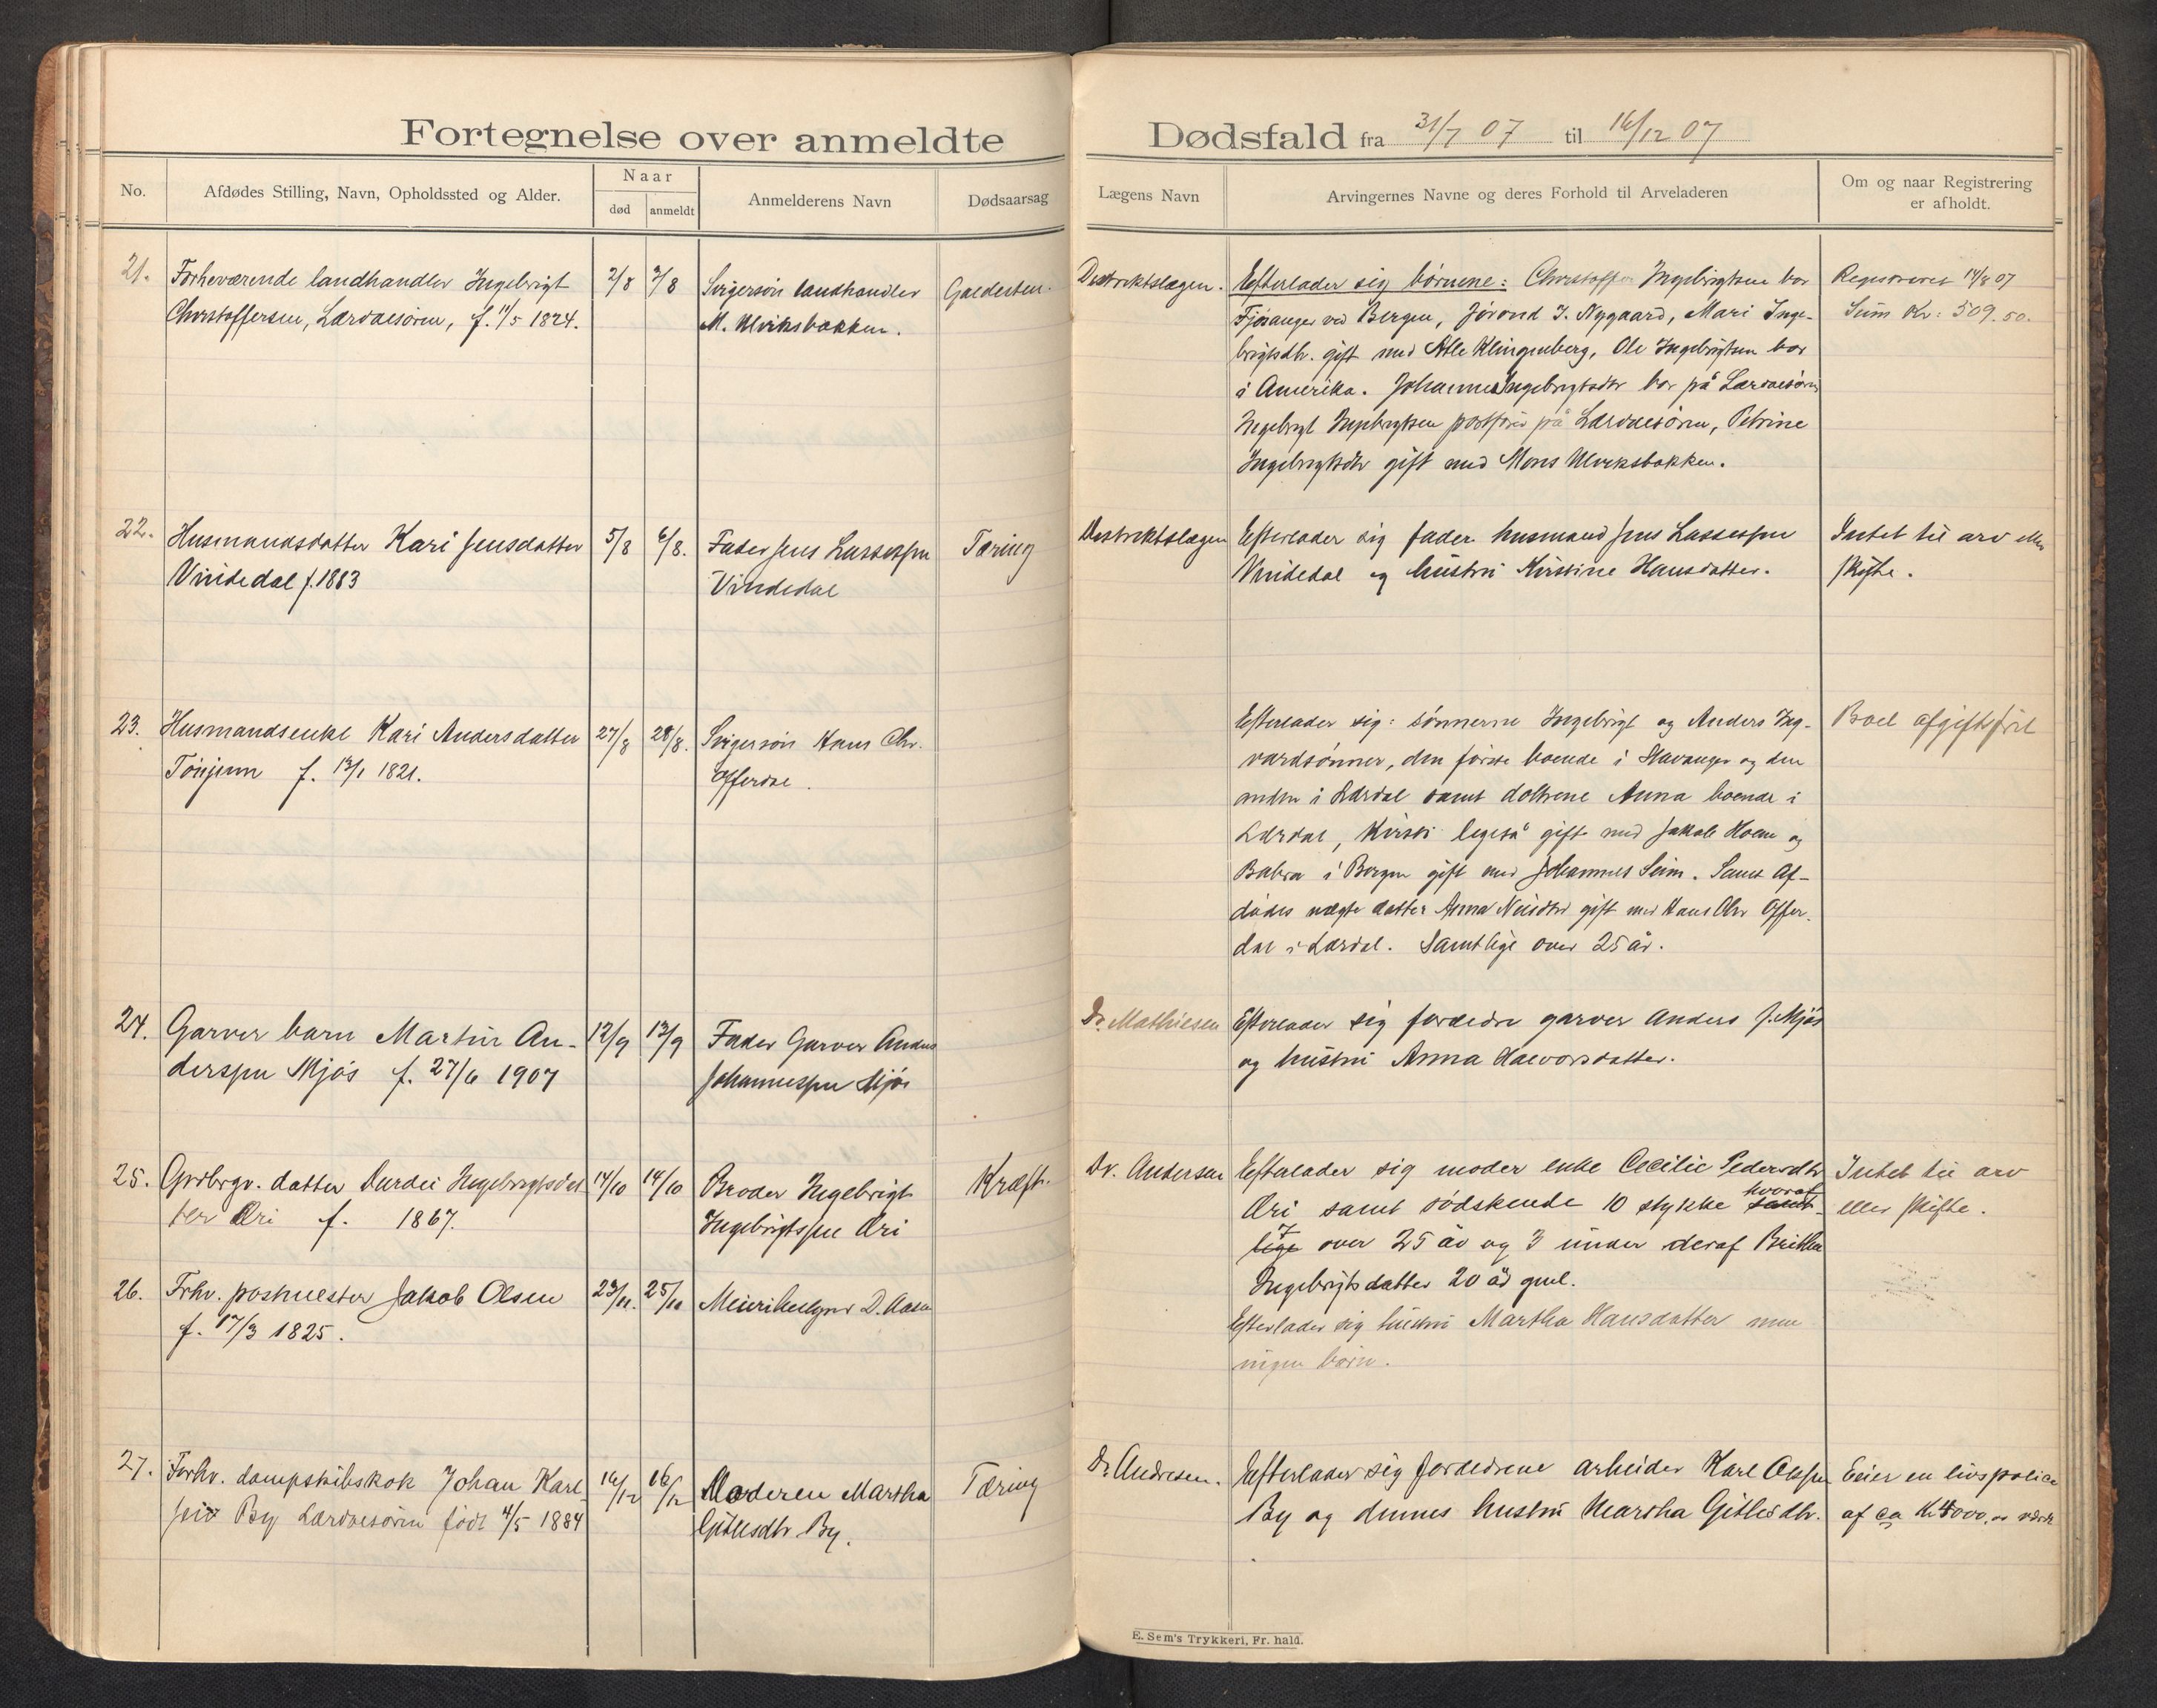 Fortegnelse over anmeldte Dødsfald fra 31/7 07 til 16/12 07
No.
Afdødes Stilling, Navn, Opholdssted og Alder.
Naar
død
anmeldt
Anmelderens Navn
Dødsaarsag
Lægens Navn
Arvingernes Navne og deres Forhold til Arveladeren
Om og naar Registrering
er afholdt.
21.
Forheværende landhandler Ingebrigt
Christoffersen, Lærdalsøren, f. 11/5 1824.
2/8
7/8
Svigersøn landhandler
M. Ulviksbakken.
Galdesten.
Destriktslægen.
Efterlader sig børnene: Christoffer Ingebrigtsen bor
Fjøsanger ved Bergen, Jørond I. Nygaard, Mari Inge-
brigtsdtr. gift med Atle Klingenberg, Ole Ingebrigtsen bor
i Amerika. Johanne Ingebrigtsdtr bor på Lærdalsøren
Ingebrigt Ingebrigtsen postfører på Lærdalsøren, Petrine
Ingebrigtsdtr gift med Mons Ulviksbakken.
Registreret 14/8 07
Sum Kr: 509.50.
22.
Husmandsdatter Kari Jensdatter
Vindedal f. 1883
5/8
6/8.
Fader Jens Lassessen
Vindedal
Tæring
Destriktslægen
Efterlader sig fader husmand Jens Lassessen
Vindedal og hustru Kirstine Hansdatter.
Intet til arv eller
skifte.
23.
Husmandsenke Kari Andersdatter
Tønjum f. 13/1 1821.
27/8
28/8.
Svigersøn Hans Chr.
Offerdal.
Efterlader sig: sønnerne Ingebrigt og Anders Ing-
vardsønner, den første boende i Stavanger og den
anden i Lærdal samt døttrene Anna boende i
Lærdal, Kirsti ligeså gift med Jakob Hoem og
Babra i Borgen gift med Johannes Seim. Samt Af-
dødes uægte datter Anna gift med Hans Chr Offer-
dal i Lærdal. Samtlige over 25 år.
Boet afgiftsfrit
24.
Garver barn Martin An-
derssen Mjøs f. 27/6 1907
12/9
13/9
Fader Garver Anders
Johannessen Mjøs
Dr. Mathiesen
Efterlader sig forældre garver Anders J. Mjøs
og hustru Anna Halvorsdatter.
25.
Grdbrgr. datter Durdei Ingebrigtsdat
ter Æri f. 1867.
14/10
14/10
Broder Ingebrigt
Ingebrigtssen Æri
Kræft.
Dr. Andersen
Efterlader sig moder enke Cecilie Pedersdtr
Æri samt sødskende 10 stykke hvoraf samt-
lige 7 over 25 år og 3 under deraf Brithe
Ingebrigtsdatter 20 år gml.
Intet til arv
eller skifte.
26.
Frhv. postmester Jakob Olsen
f. 17/3 1825.
23/11.
25/11
Meieribestyrer D. Aasen
Efterlader sig hustru Martha Hansdatter men
ingen børn.
27.
Forhv. dampskibskok Johan Karl-
sen By Lærdalsøren født 4/5 1884
16/12
16/12
Moderen Martha
Gitlesdtr By.
Tæring
Dr. Andresen.
Efterlader sig forældrene arbeider Karl Olssen
By og dennes hustru Martha Gitlesdtr.
Eier en livspolice
af ca Kr 4000. værdi
E. Sem's Trykkeri, Fr.hald.